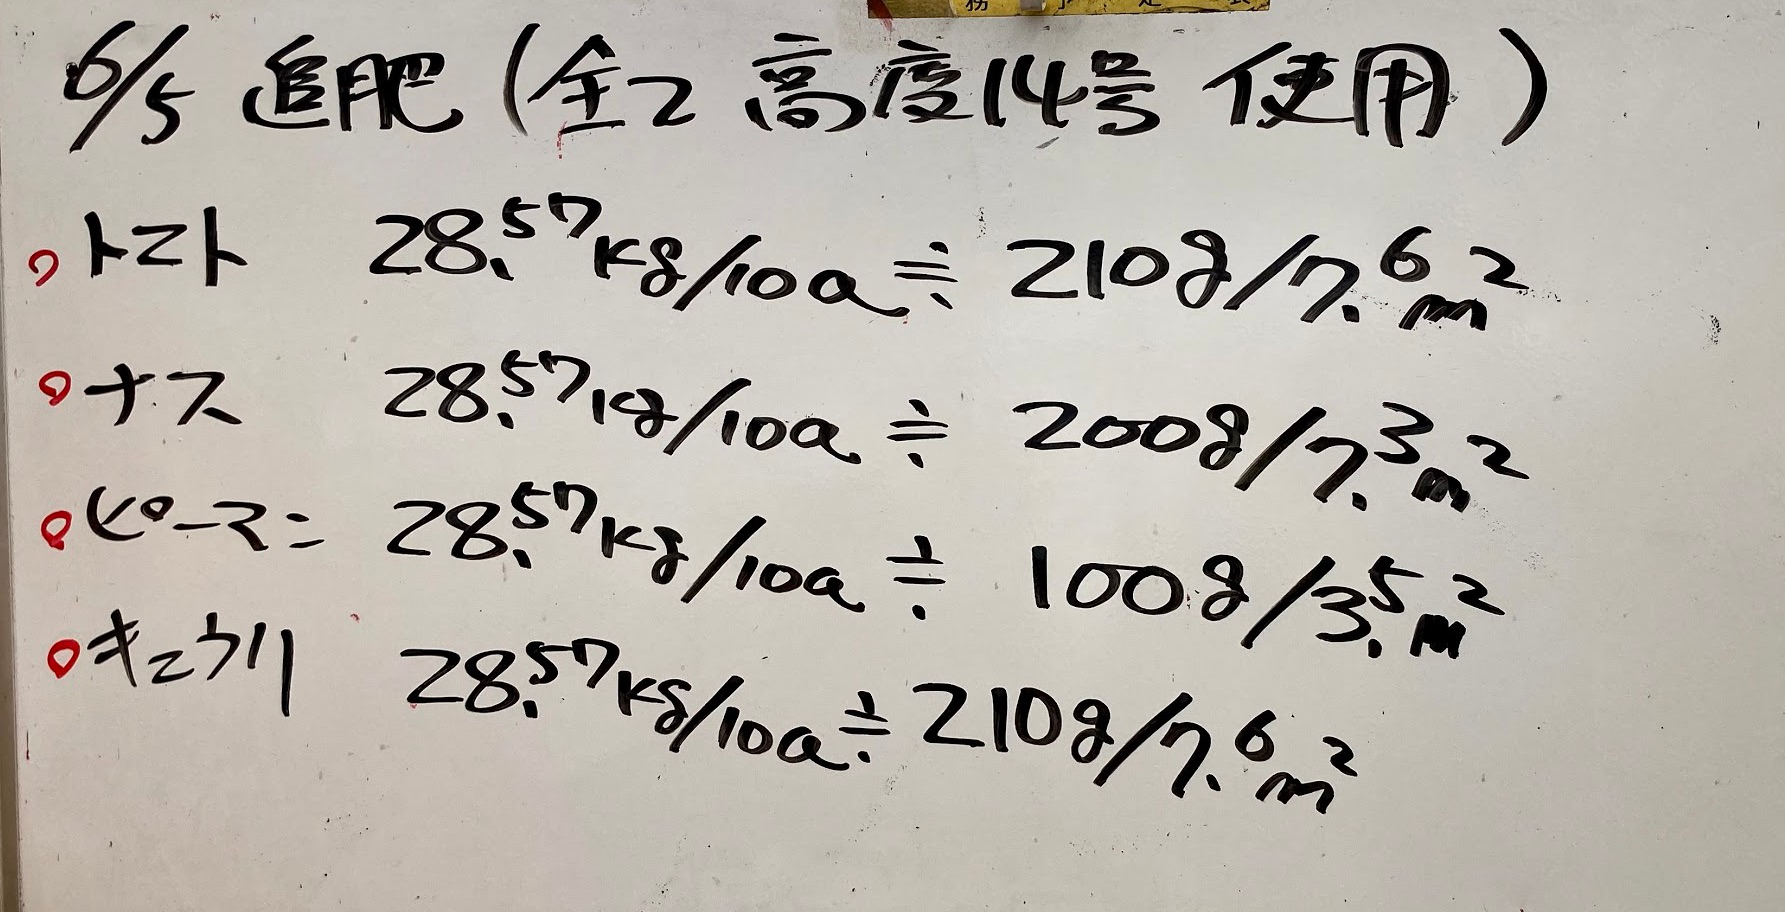 6/5 追肥 (全て 高度14号 使用)
トマト 28.57kg/10a≒ 210g/7.6m²
ナス 28.57kg/10a ≒ 200g/7.3m²
ピーマン 28.57kg/10a ≒ 100g/3.5m²
キュウリ 28.57kg/10a≒ 210g/7.6m²